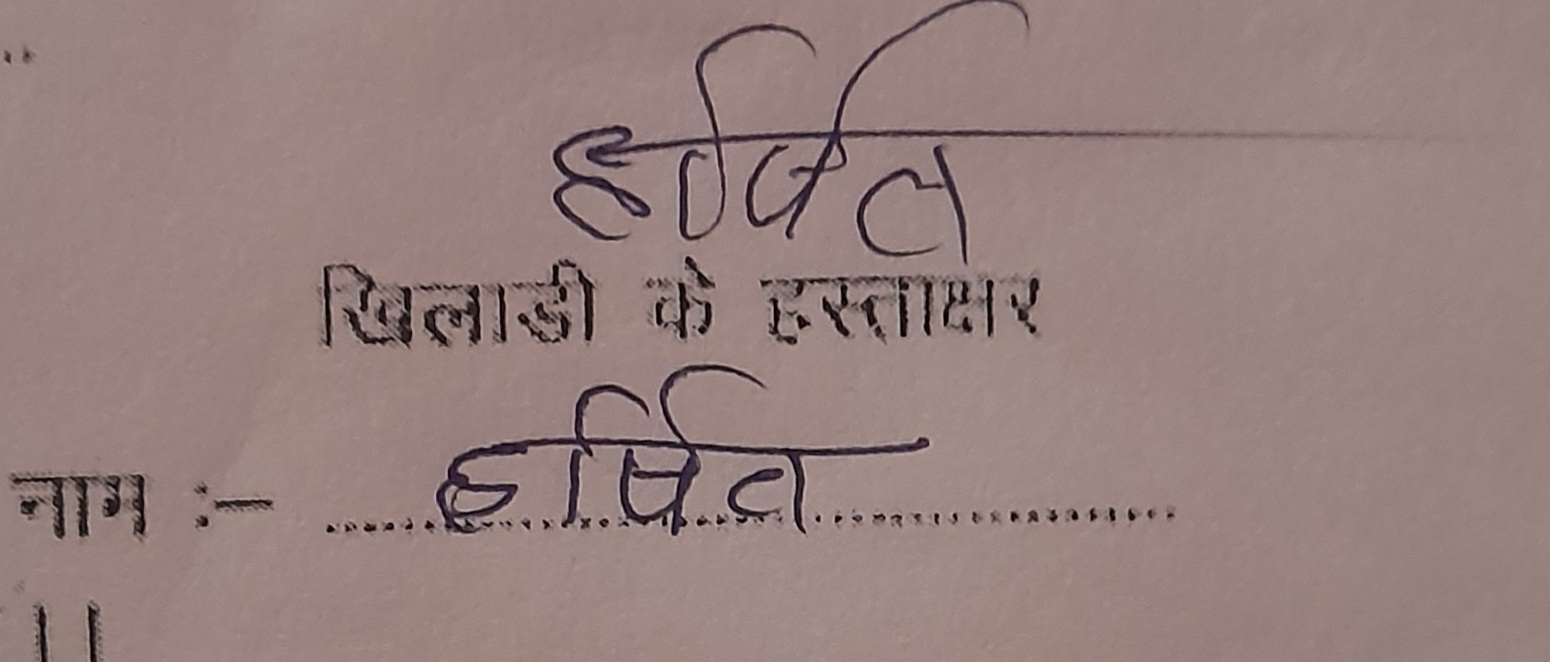 हर्षित
खिलाडी के हस्ताक्षर
नाम :- हर्षित